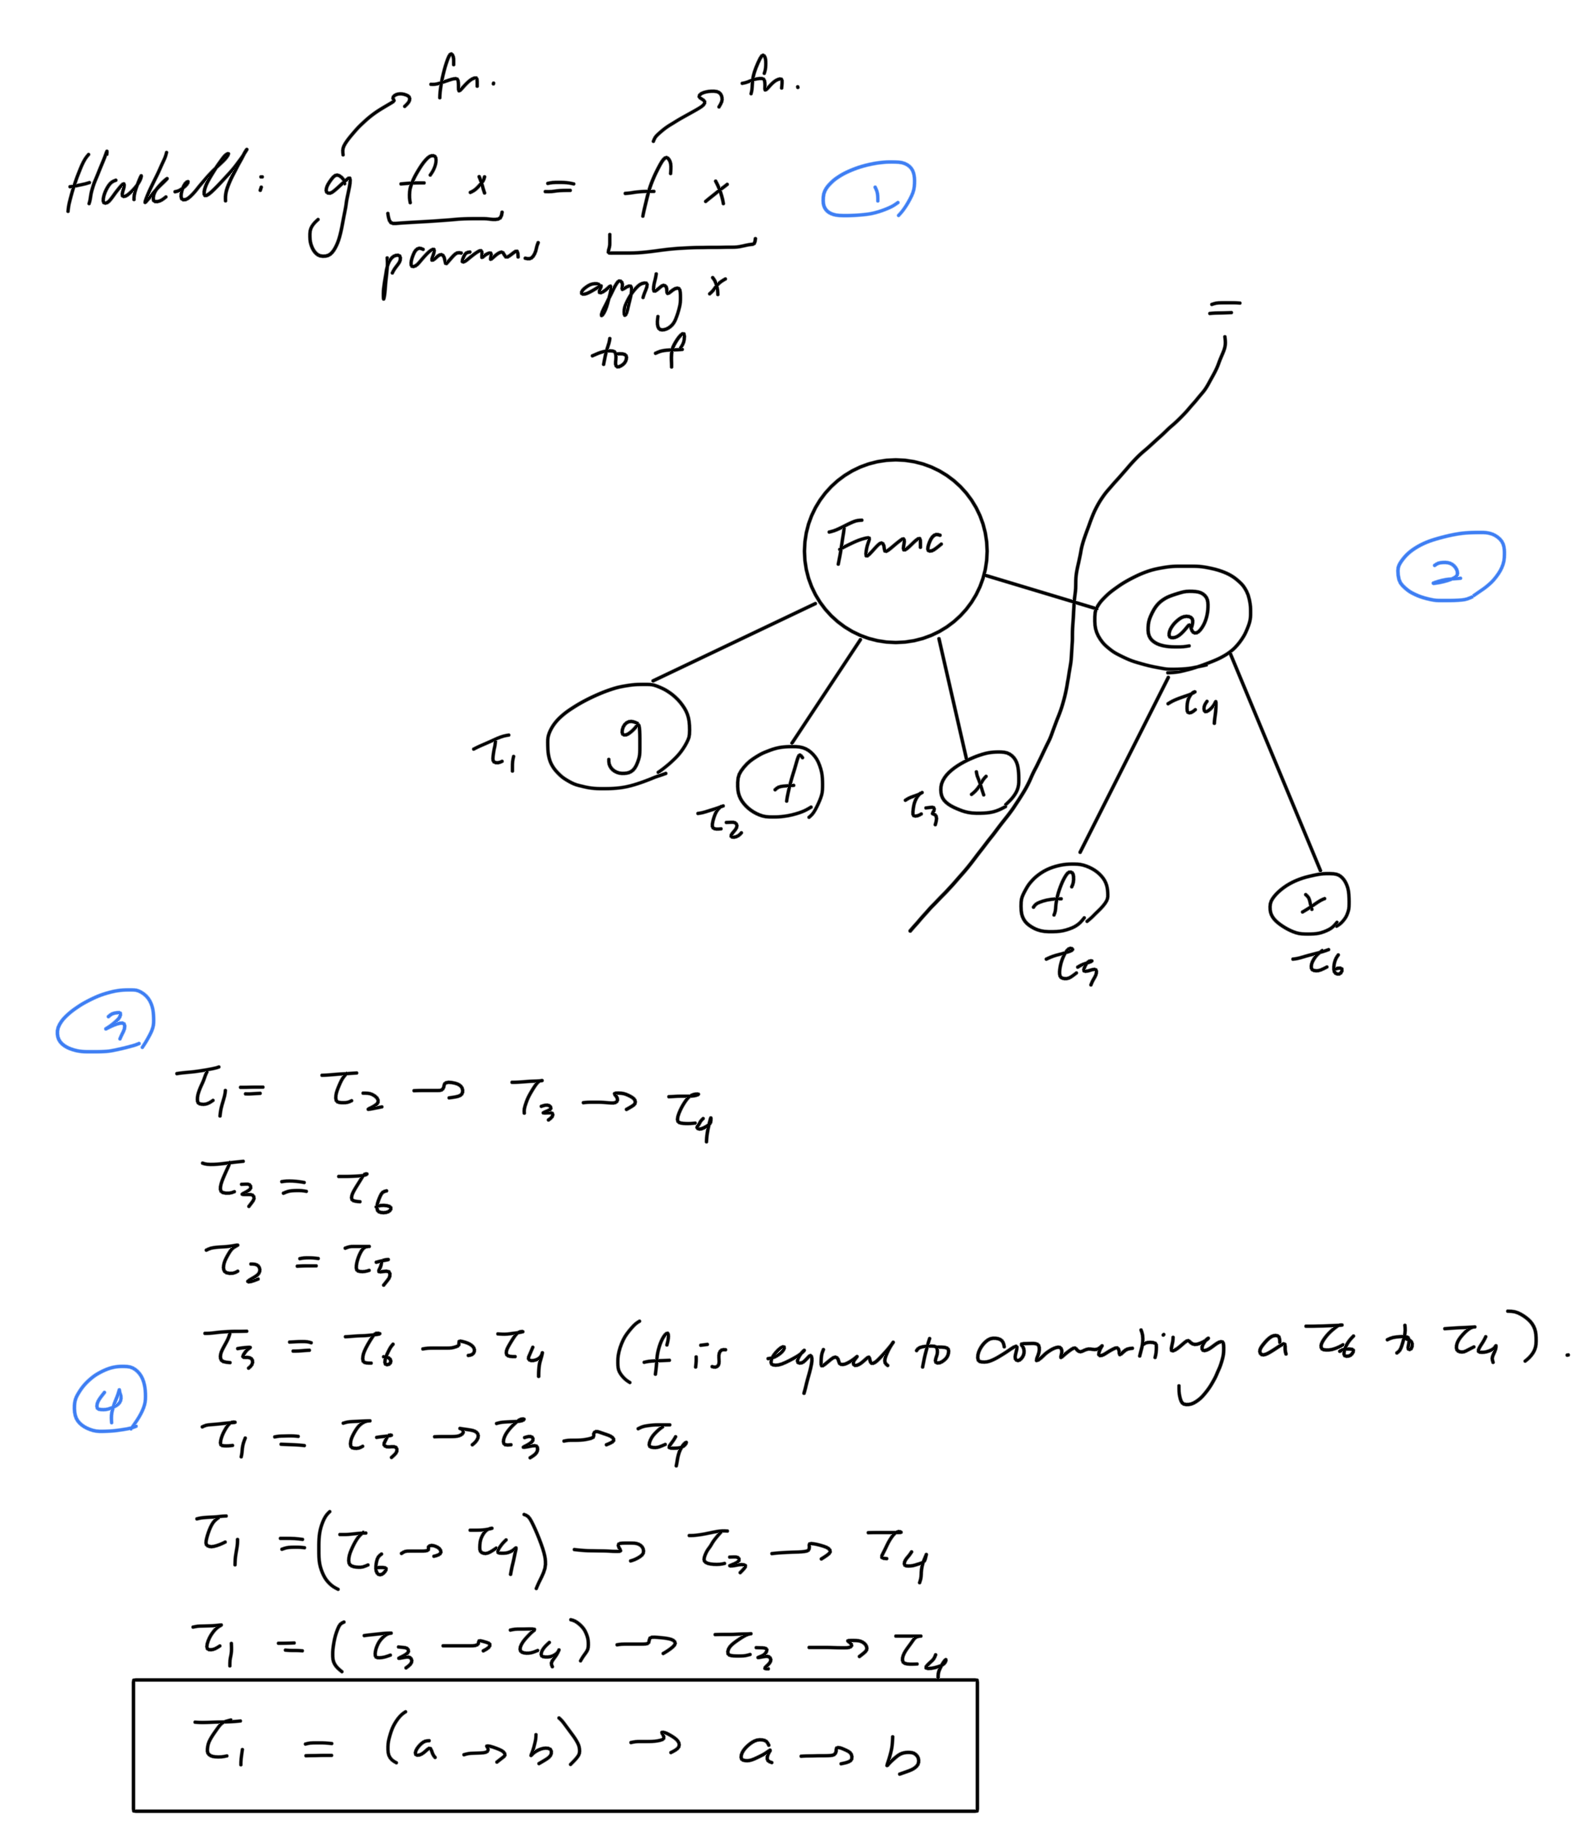 fn. fn.
Haskell: g f x = f x ①
params
apply x
to f
=
Func
②
@
τ4
τ1 g
f
τ2
τ3 x
f
x
τ5
τ6
③
τ1 = τ2 → τ3 → τ4
τ3 = τ6
τ2 = τ5
τ5 = τ6 → τ4 (f is equal to converting a τ6 to τ4).
④
τ1 = τ5 → τ3 → τ4
τ1 = (τ6 → τ4) → τ3 → τ4
τ1 = (τ3 → τ4) → τ3 → τ4
τ1 = (a → b) → a → b